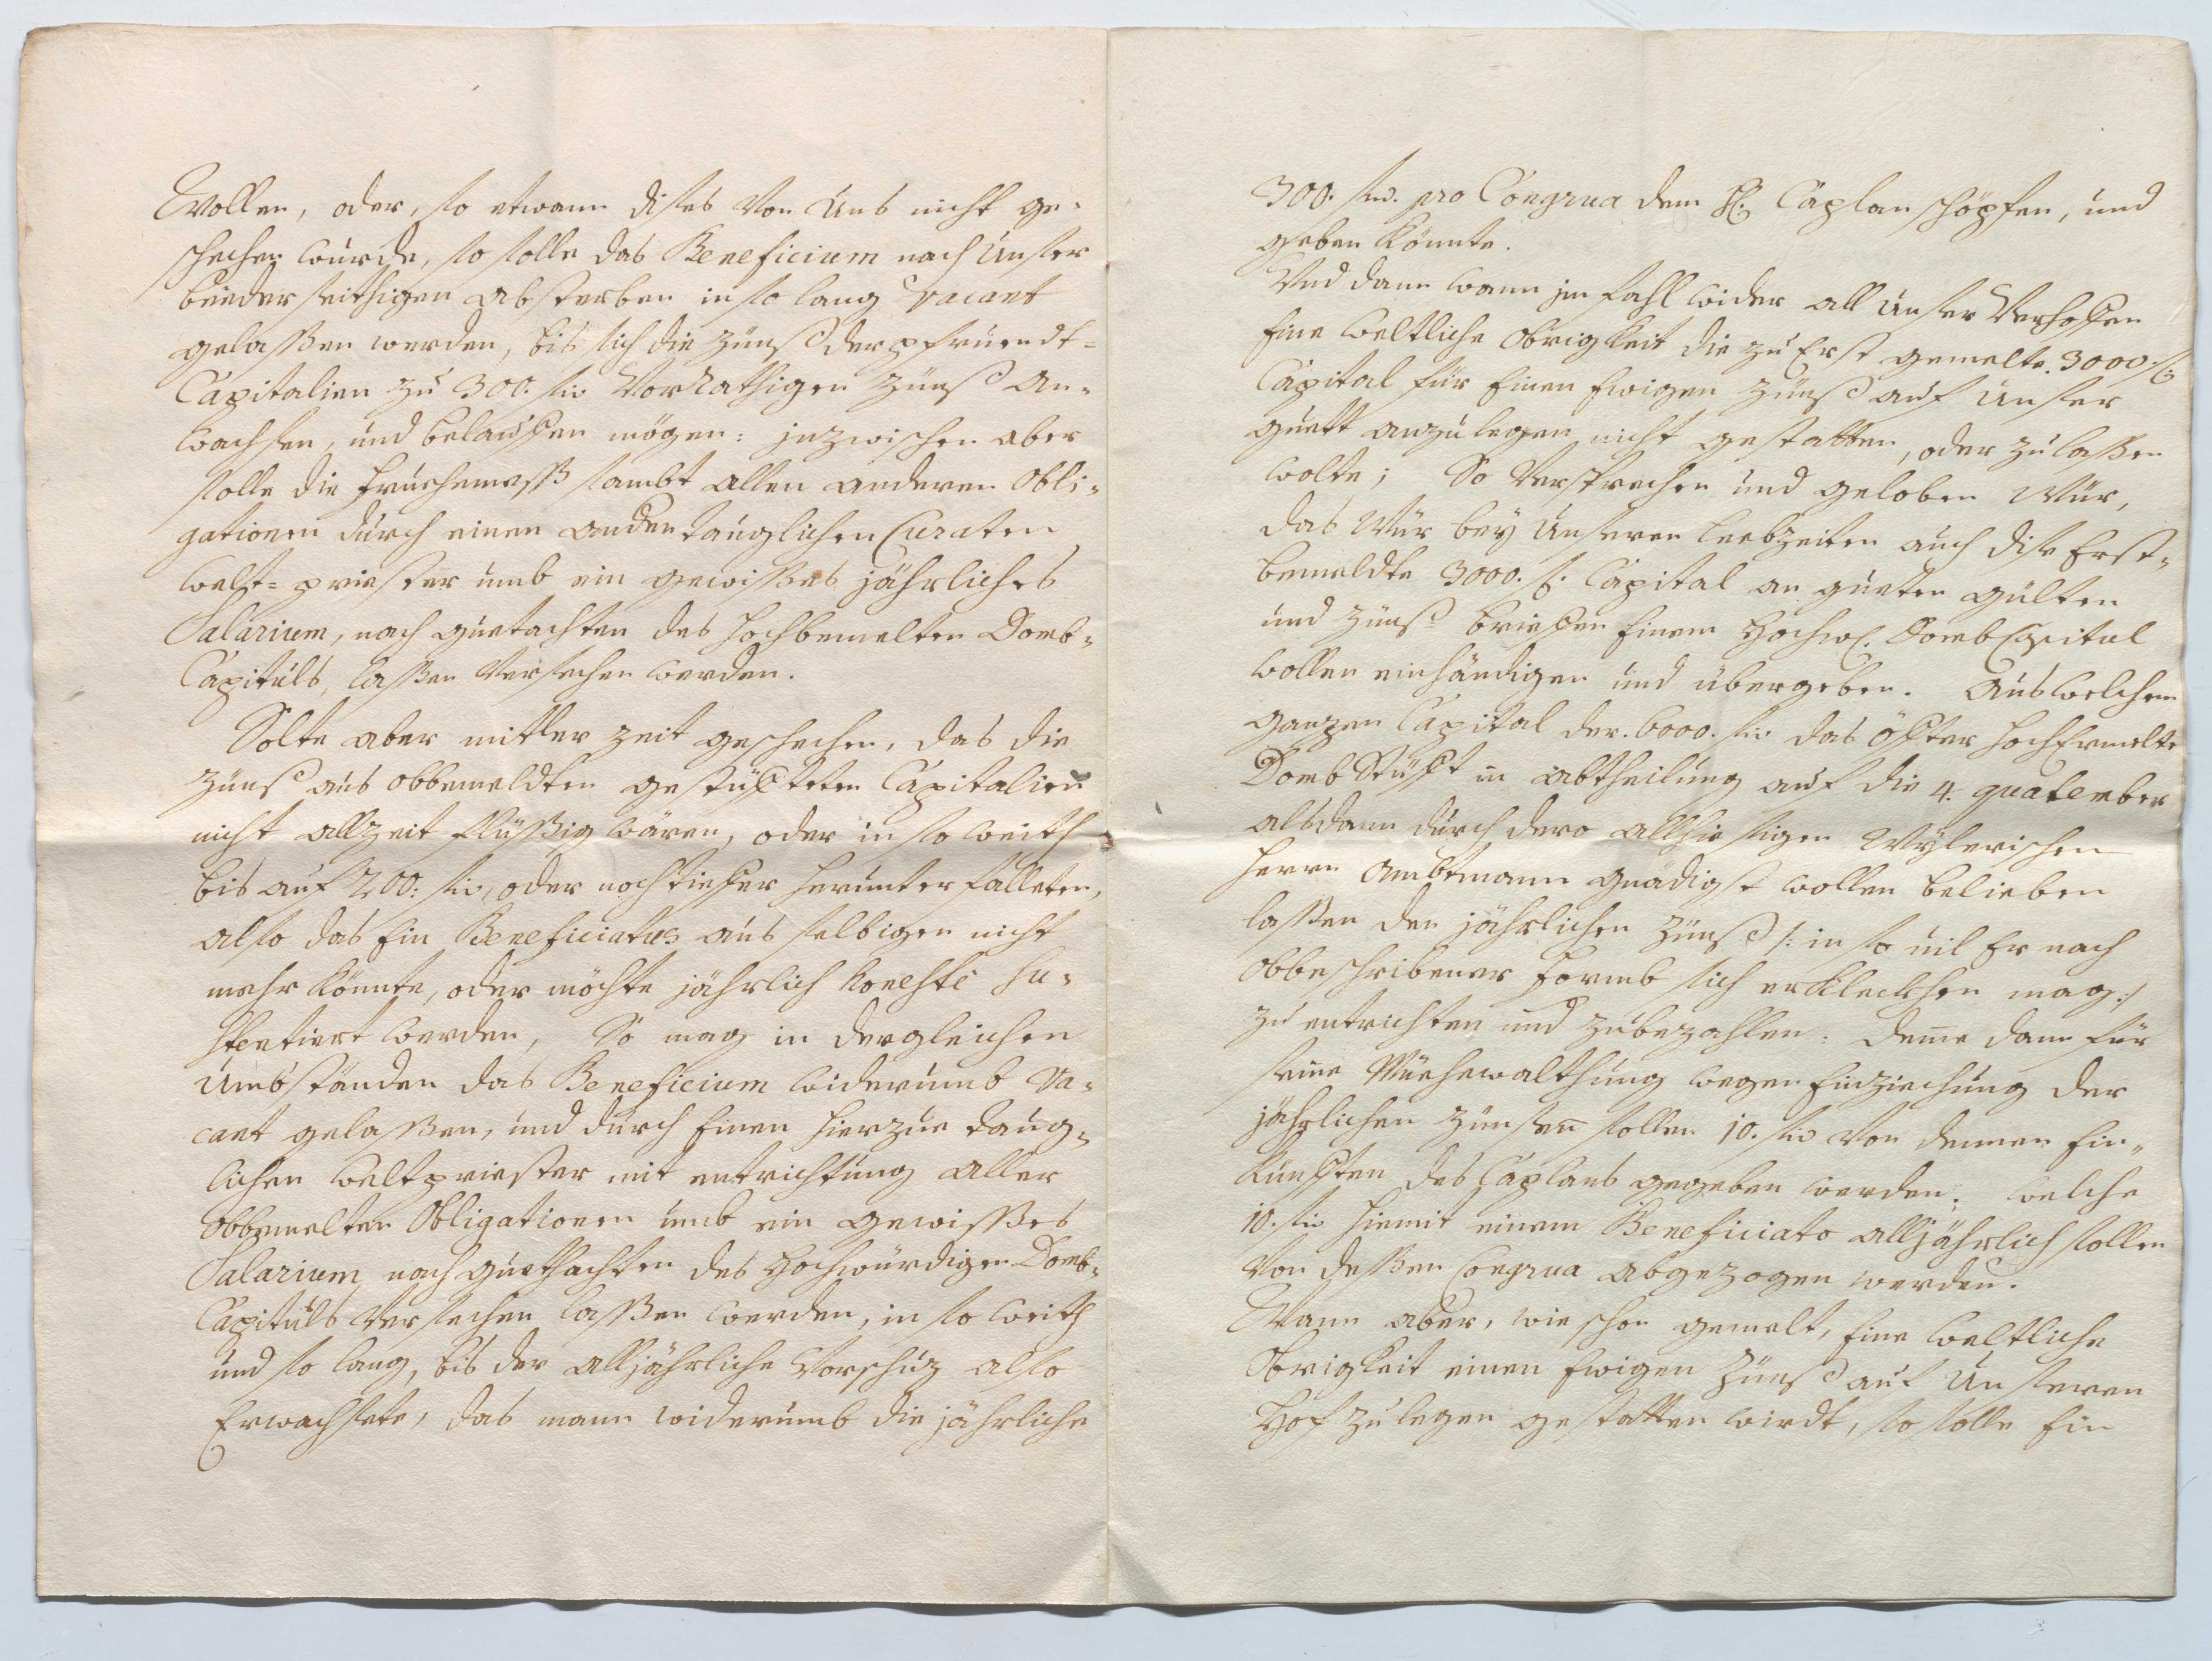 Wollen, oder, so etwann dises von Uns nicht ge-
schechen wurde, so solle das Beneficium nach Unser
beederseithigen absterben in so lang vacant
gelaßen werden, bis sich die Zünß der pfruendt-
Capitalien zu 300. fl. Vorrathigen Zünß an-
wachsen, und belauffen mögen: inzwischen aber
solle die Fruehemeß sambt allen anderen Obli-
gationen durch einen anderen tauglichen Curaten
welt-priester umb ein gewißes jährliches
Salarium, nach guetachten des Hochbemelten Domb-
Capituls, laßen versechen werden.
Solte aber mitler zeit geschechen, das die
Zünß aus obbemeldten gestüffteten Capitalien
nicht allzeit flüßig wären, oder in so weith
bis auf 200: fl., oder noch tieffer herunter falleten,
also das Ein Beneficiatus aus selbigen nicht
mehr könnte, oder möchte jährlich honeste su-
stentiert werden, So mag in dergleichen
Umbständen das Beneficium widerumb va-
cant gelaßen, und durch Einen hierzue taug-
lichen weltpriester mit entrichtung aller
obbemelten Obligationen umb ein gewißes
Salarium, nach guethachten des Hochwürdigen Domb-
Capituls versechen laßen werden, in so weith
und so lang, bis der alljährliche Vorschuz also
Erwachsete, das mann widerumb die jährliche
300. fl. pro Congrua dem H: Caplan schöpfen, und
geben könnte.
Und dann wann im fahl wider all Unser Verhoffen
Eine weltliche Obrigkeit die zu Erst gemelte 3000 fl.
Capital für Einen Ewigen Zünß auf Unser
guett anzulegen nicht gestatten, oder zulaßen
wolte; So Versprechen und geloben Wür,
das Wür bey Unseren leebzeiten auch dise Erst-
bemeldte 3000. fl. Capital an gueten gülten
und Zünß brieffen Einem Hochw. Domb Capitul
wollen einhändigen und übergeben. Aus welchem
ganzen Capital der 6000. fl. das öffter HochErmelte
Domb Stüfft in abtheilung auf die 4. quatember
alsdann durch dero allhiesigen Wylerischen
Herrn Ambtmann gnädigst wollen belieben
laßen den jährlichen Zünß /: in so vil Er nach
obbeschribener Formb sich erklecken mag :/
zu entrichten und zubezahlen: deme dann für
seine Müehewalthung wegen Einziechung der
jährlichen Zünsen sollen 10. fl. von dennen Ein-
künfften des Caplans gegeben werden: welche
10. fl. hiemit einem Beneficiato alljährlich sollen
von deßen Congrua abgezogen werden.
Wann aber, wie schon gemelt, Eine weltliche
Obrigkeit einen Ewigen Zünß auf Unseren
Hof zulegen gestatten wirdt, so solle Ein